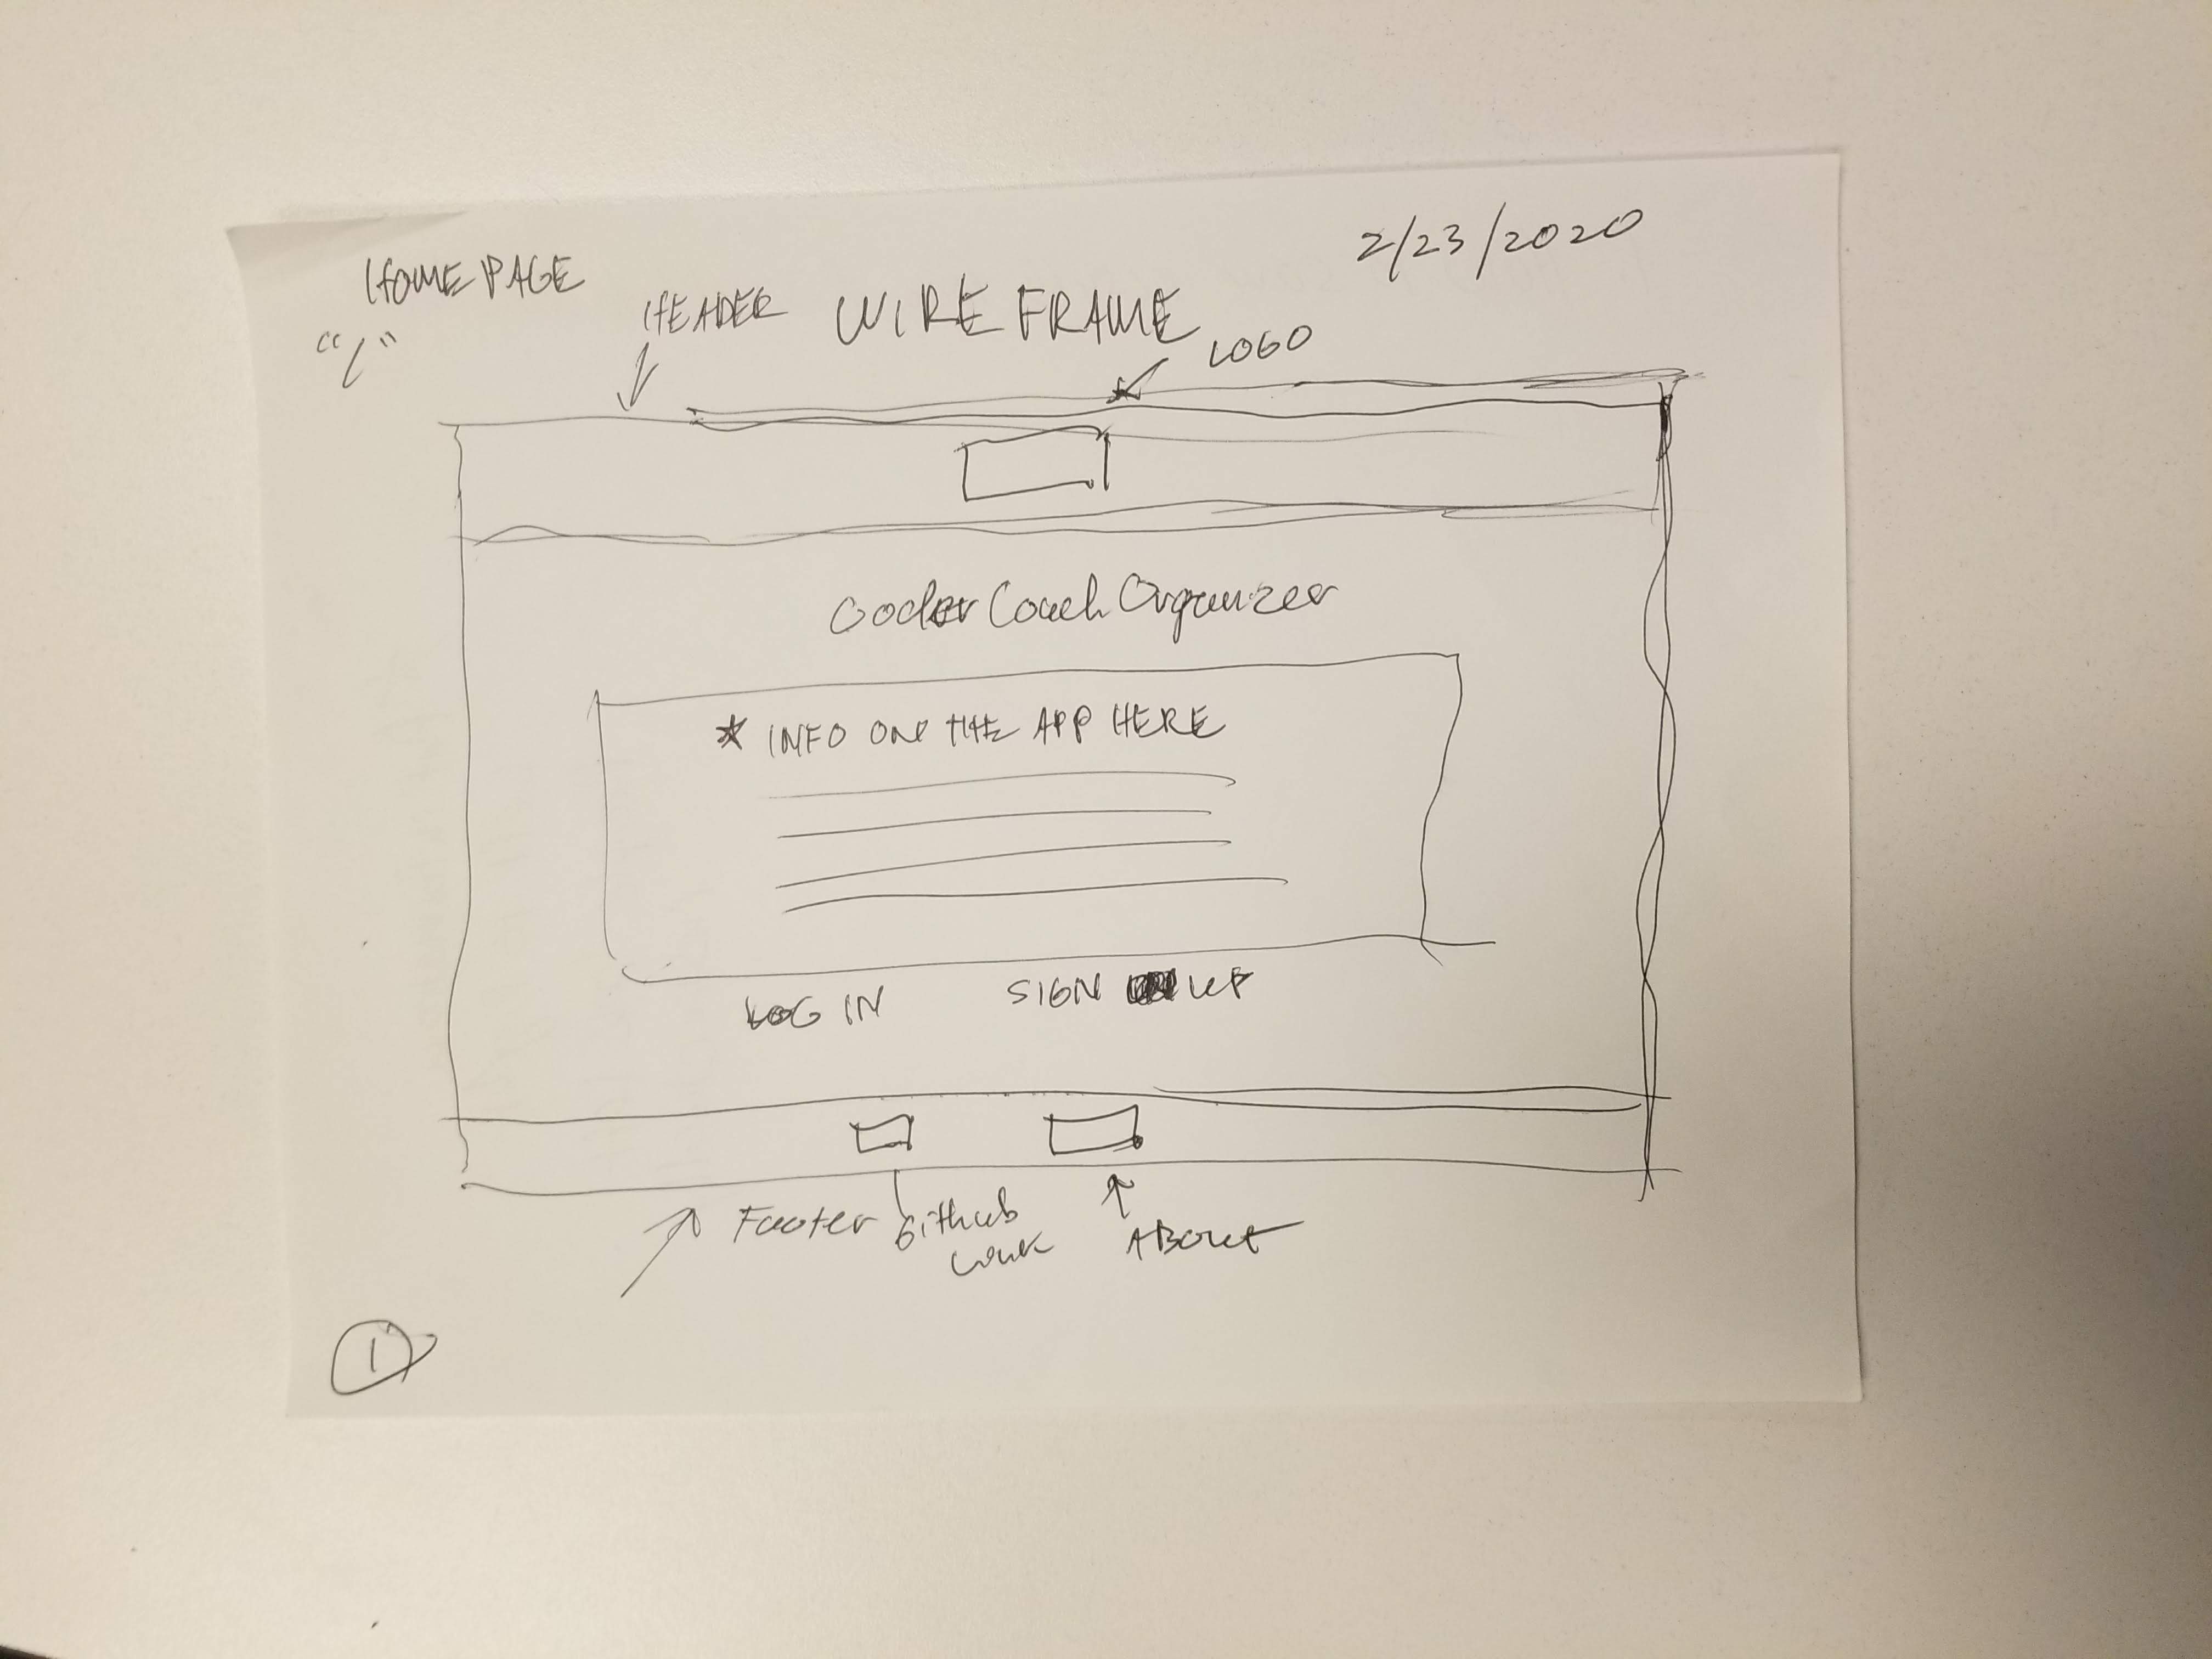 2/23/2020
HOME PAGE
"/"
HEADER
WIRE FRAME
LOGO
Coder Coach Organizer
* INFO ON THE APP HERE
LOG IN
SIGN UP
Footer
Github
Link
ABOUT
1